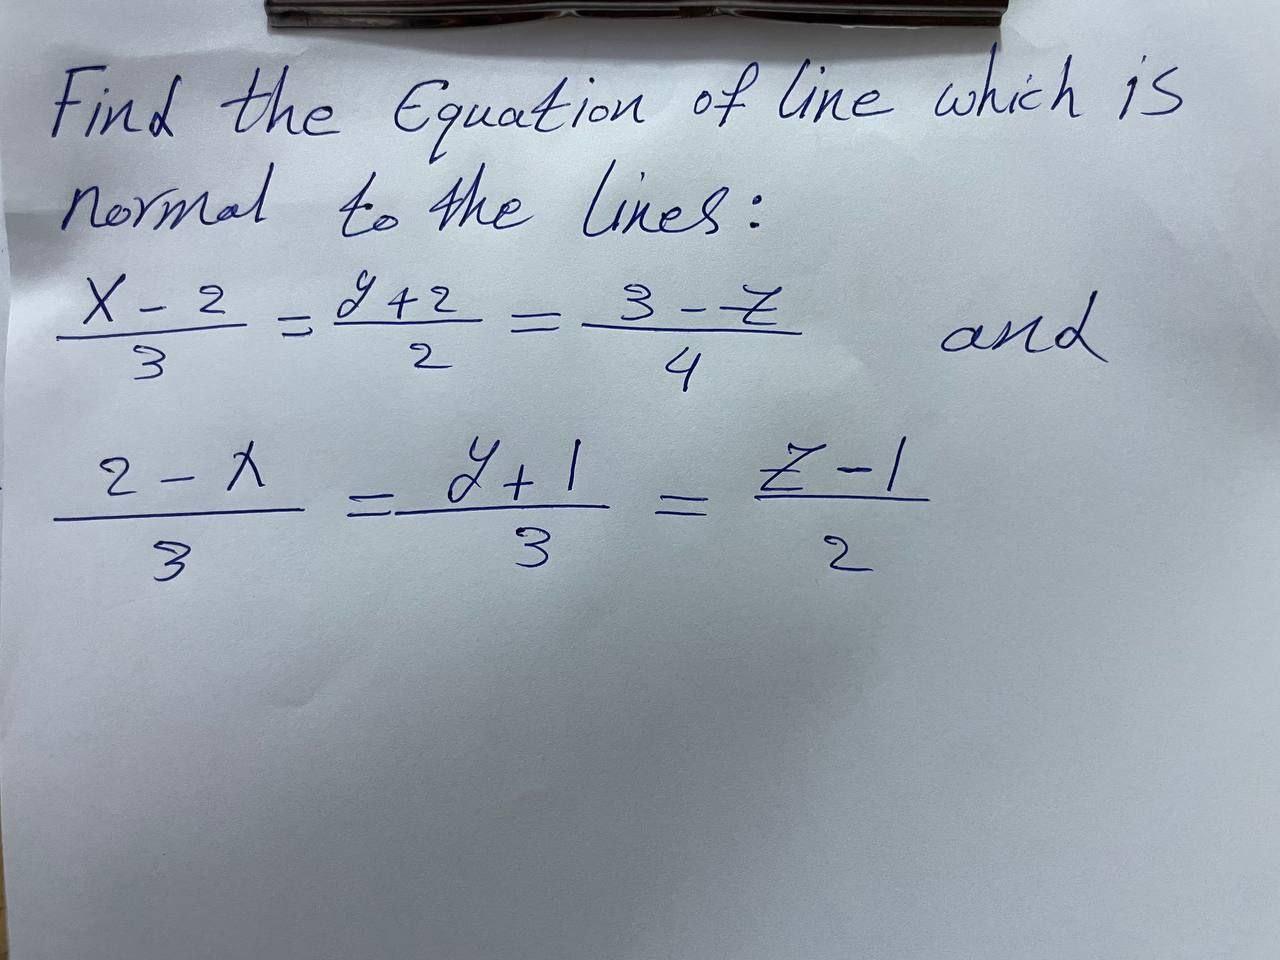 Find the Equation of line which is
normal to the lines:
X - 2 / 3 = y + 2 / 2 = 3 - z / 4 and
2 - x / 3 = y + 1 / 3 = z - 1 / 2